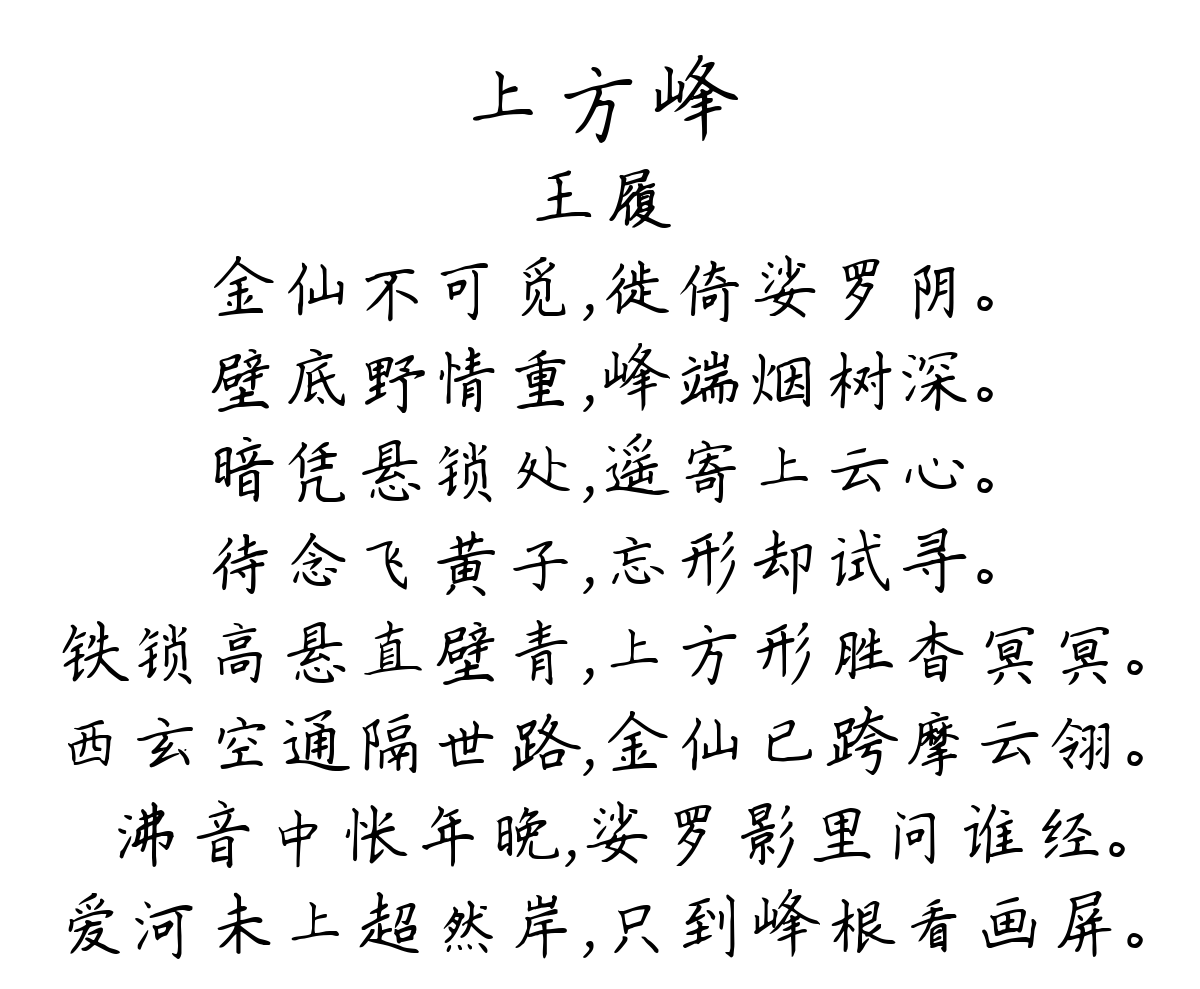 上方峰
王履
金仙不可觅,徙倚娑罗阴。
壁底野情重,峰端烟树深。
暗凭悬锁处,遥寄上云心。
待念飞黄子,忘形却试寻。
铁锁高悬直壁青,上方形胜杳冥冥。
西玄空通隔世路,金仙已跨摩云翎。
沸音中怅年晚,娑罗影里问谁经。
爱河未上超然岸,只到峰根看画屏。